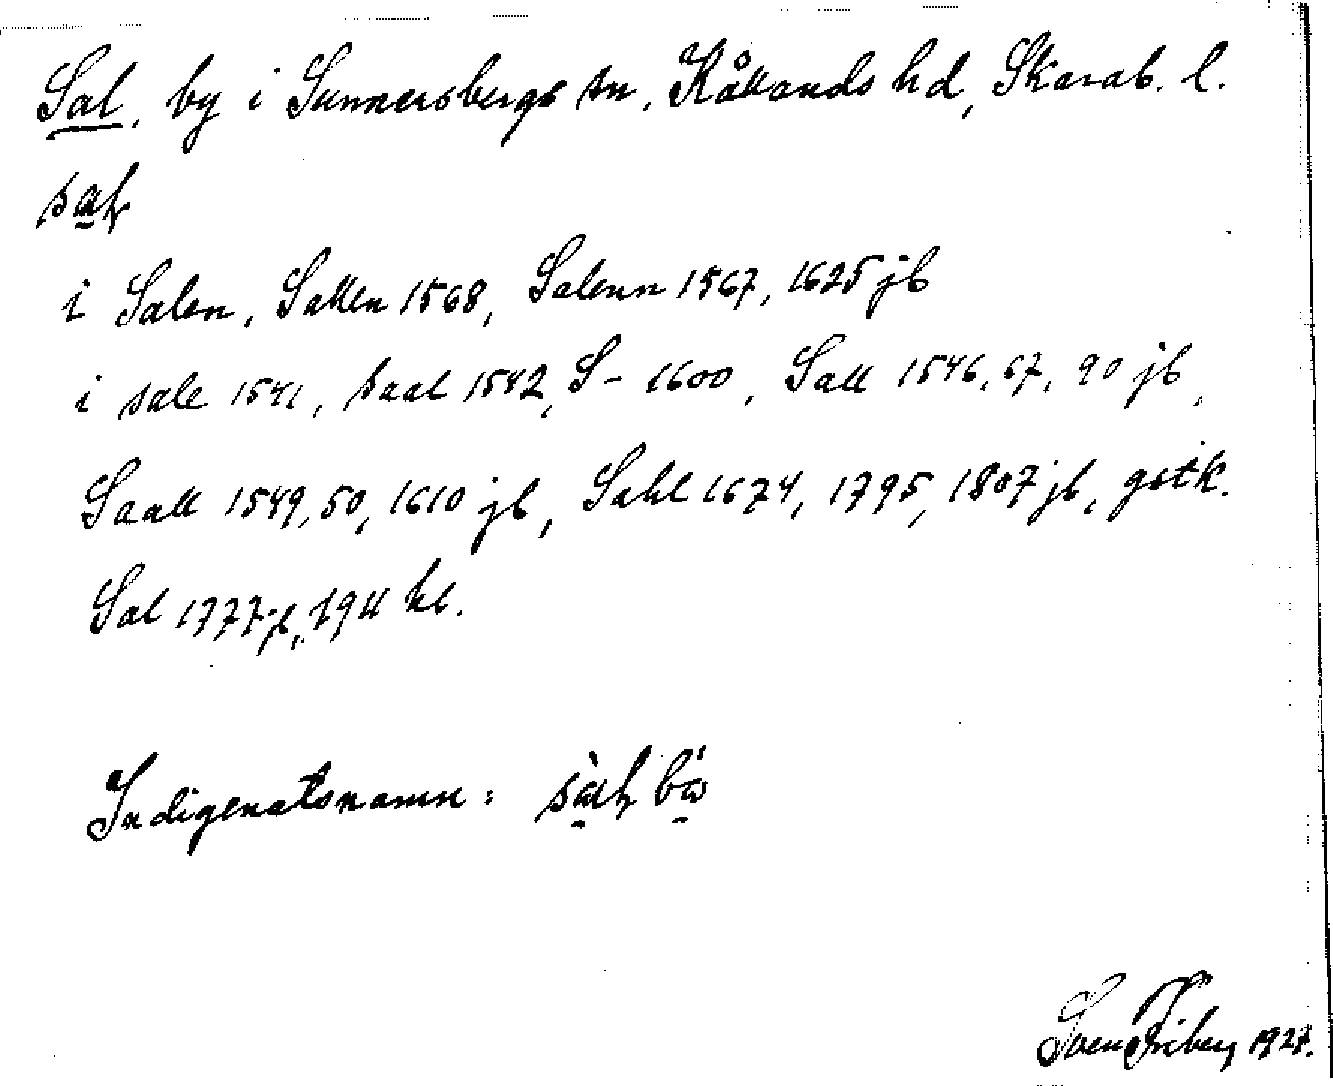 Sal, by i Sunnersbergs sn, Kållands hd, Skarab. l.
sɑɫ
i Salen, Sallen 1568, Salenn 1567, 1625 jb
i sale 1541, saal 1542, S- 1600, Sall 1546, 67, 90 jb,
Saall 1549, 50, 1610 jb, Sahl 1674, 1795, 1807 jb, gstk.
Sal 1777 jb, 1911 kl.
Indigenatsnamn:
Sven Friberg 1927.